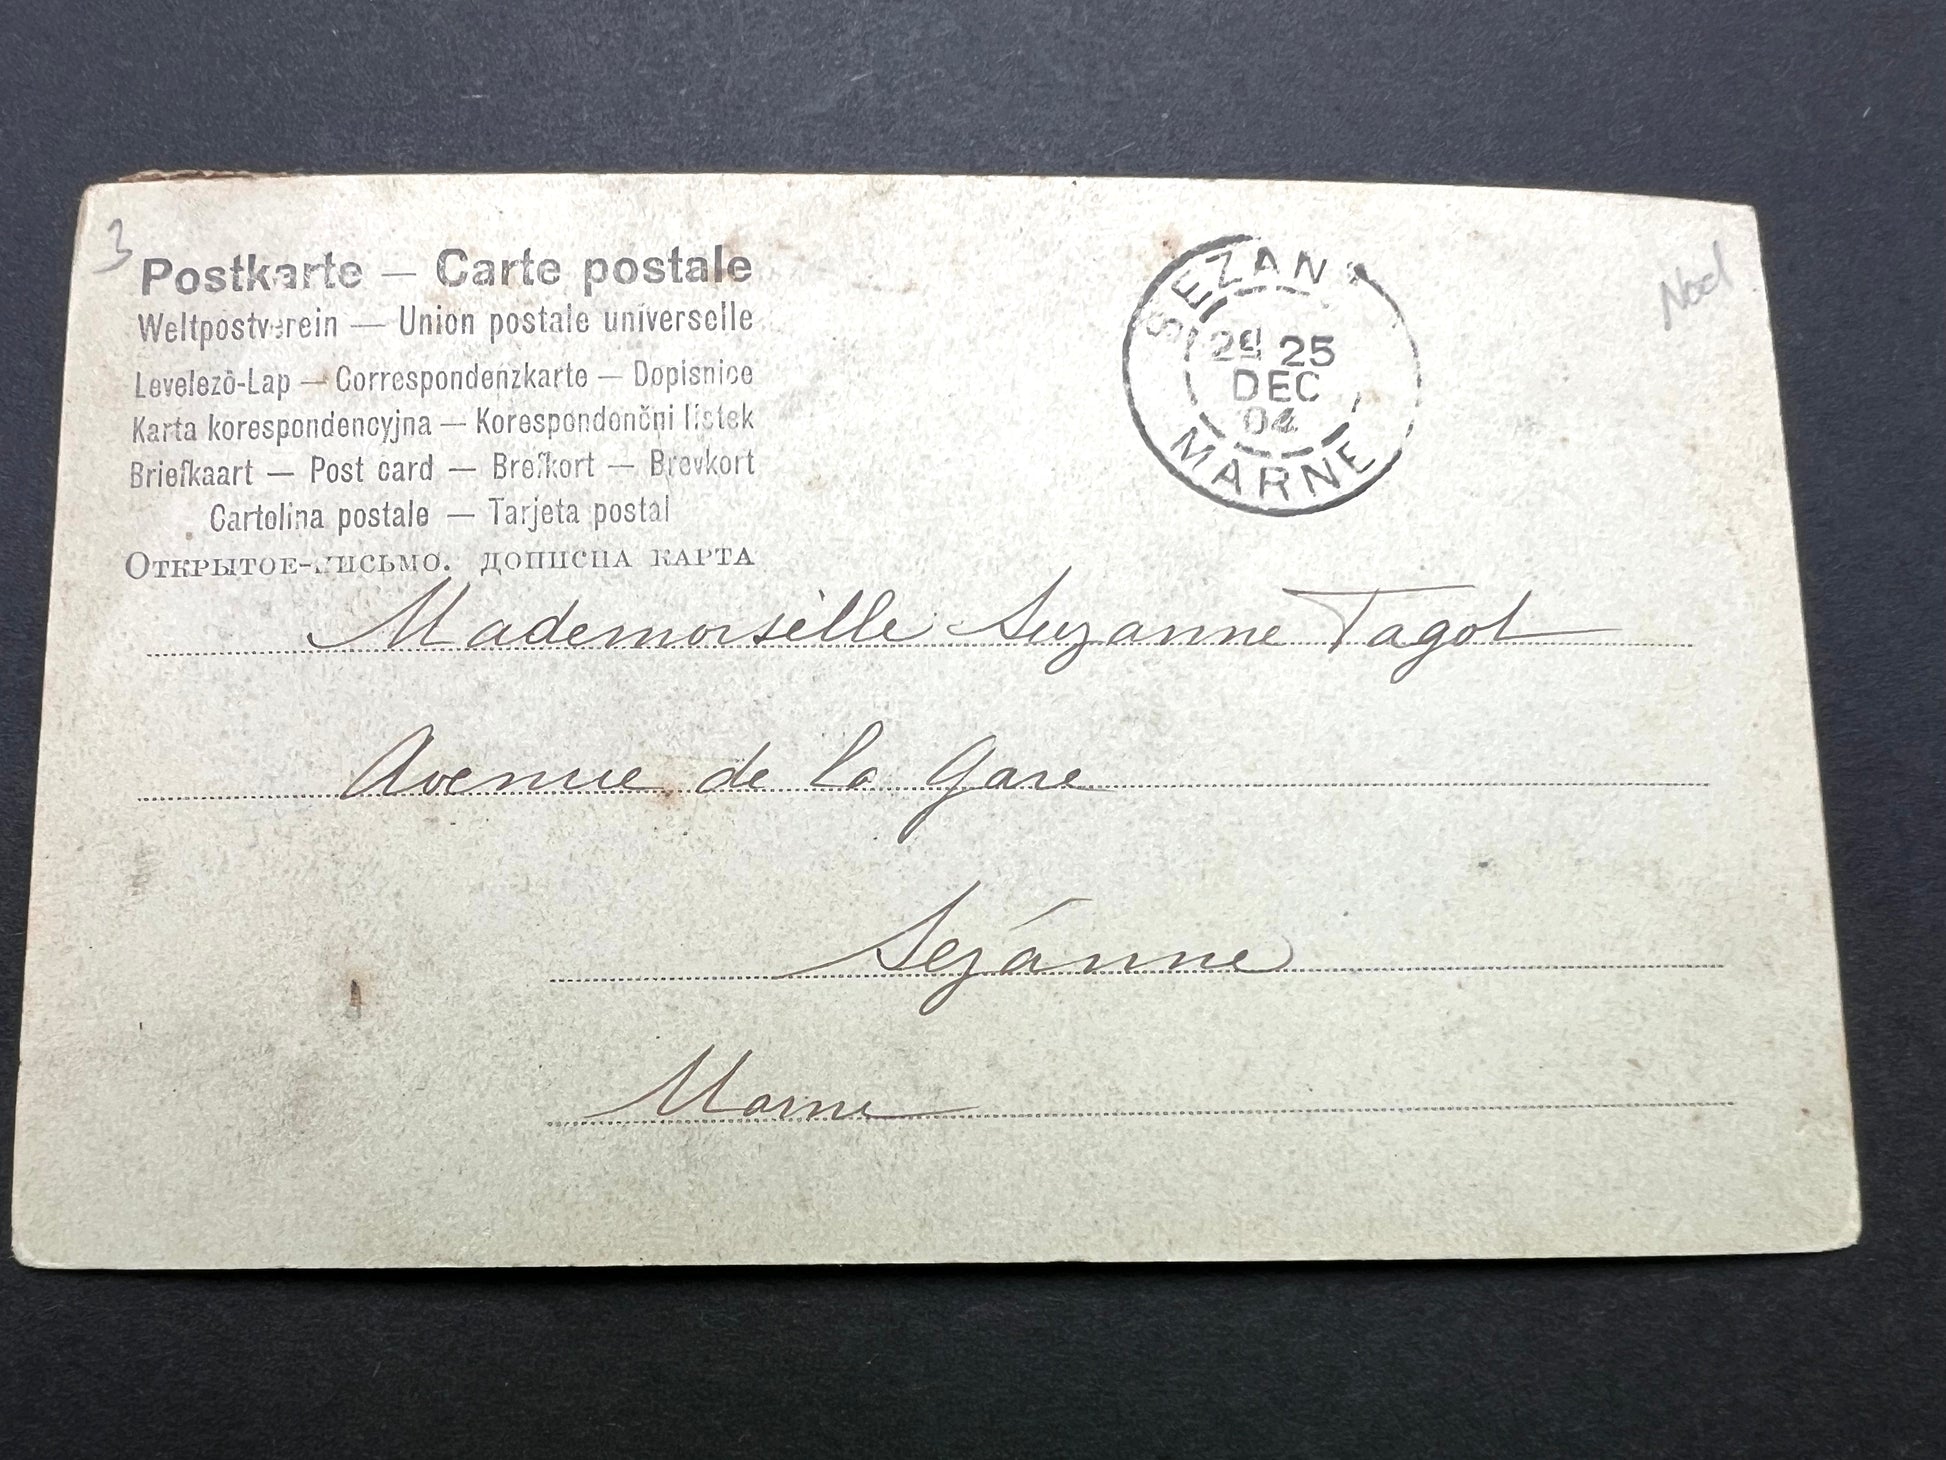 3
Postkarte — Carte postale
Weltpostverein — Union postale universelle
Levelező-Lap — Correspondenzkarte — Dopisnice
Karta korespondencyjna — Korespondenční lístek
Briefkaart — Post card — Brefkort — Brevkort
Cartolina postale — Tarjeta postal
Открытое-письмо. дописна карта
SEZANNE
2E 25
DEC
04
MARNE
Noel
Mademoiselle Suzanne Tagot
Avenue de la Gare
Sézanne
Marne